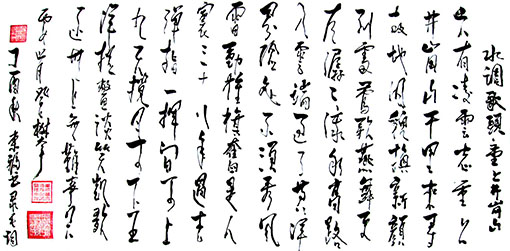 水调歌头重上井冈山
久有凌云志重上
井冈山千里来寻
故地旧貌换新颜
到处莺歌燕舞更
有潺潺流水高路
入云端过了黄洋
界险处不须看风
雷动旌旗奋是人
寰三十八年过去
弹指一挥间可上
九天揽月可下五
洋捉鳖谈笑凯歌
还世上无难事只
要肯登攀
丁酉秋